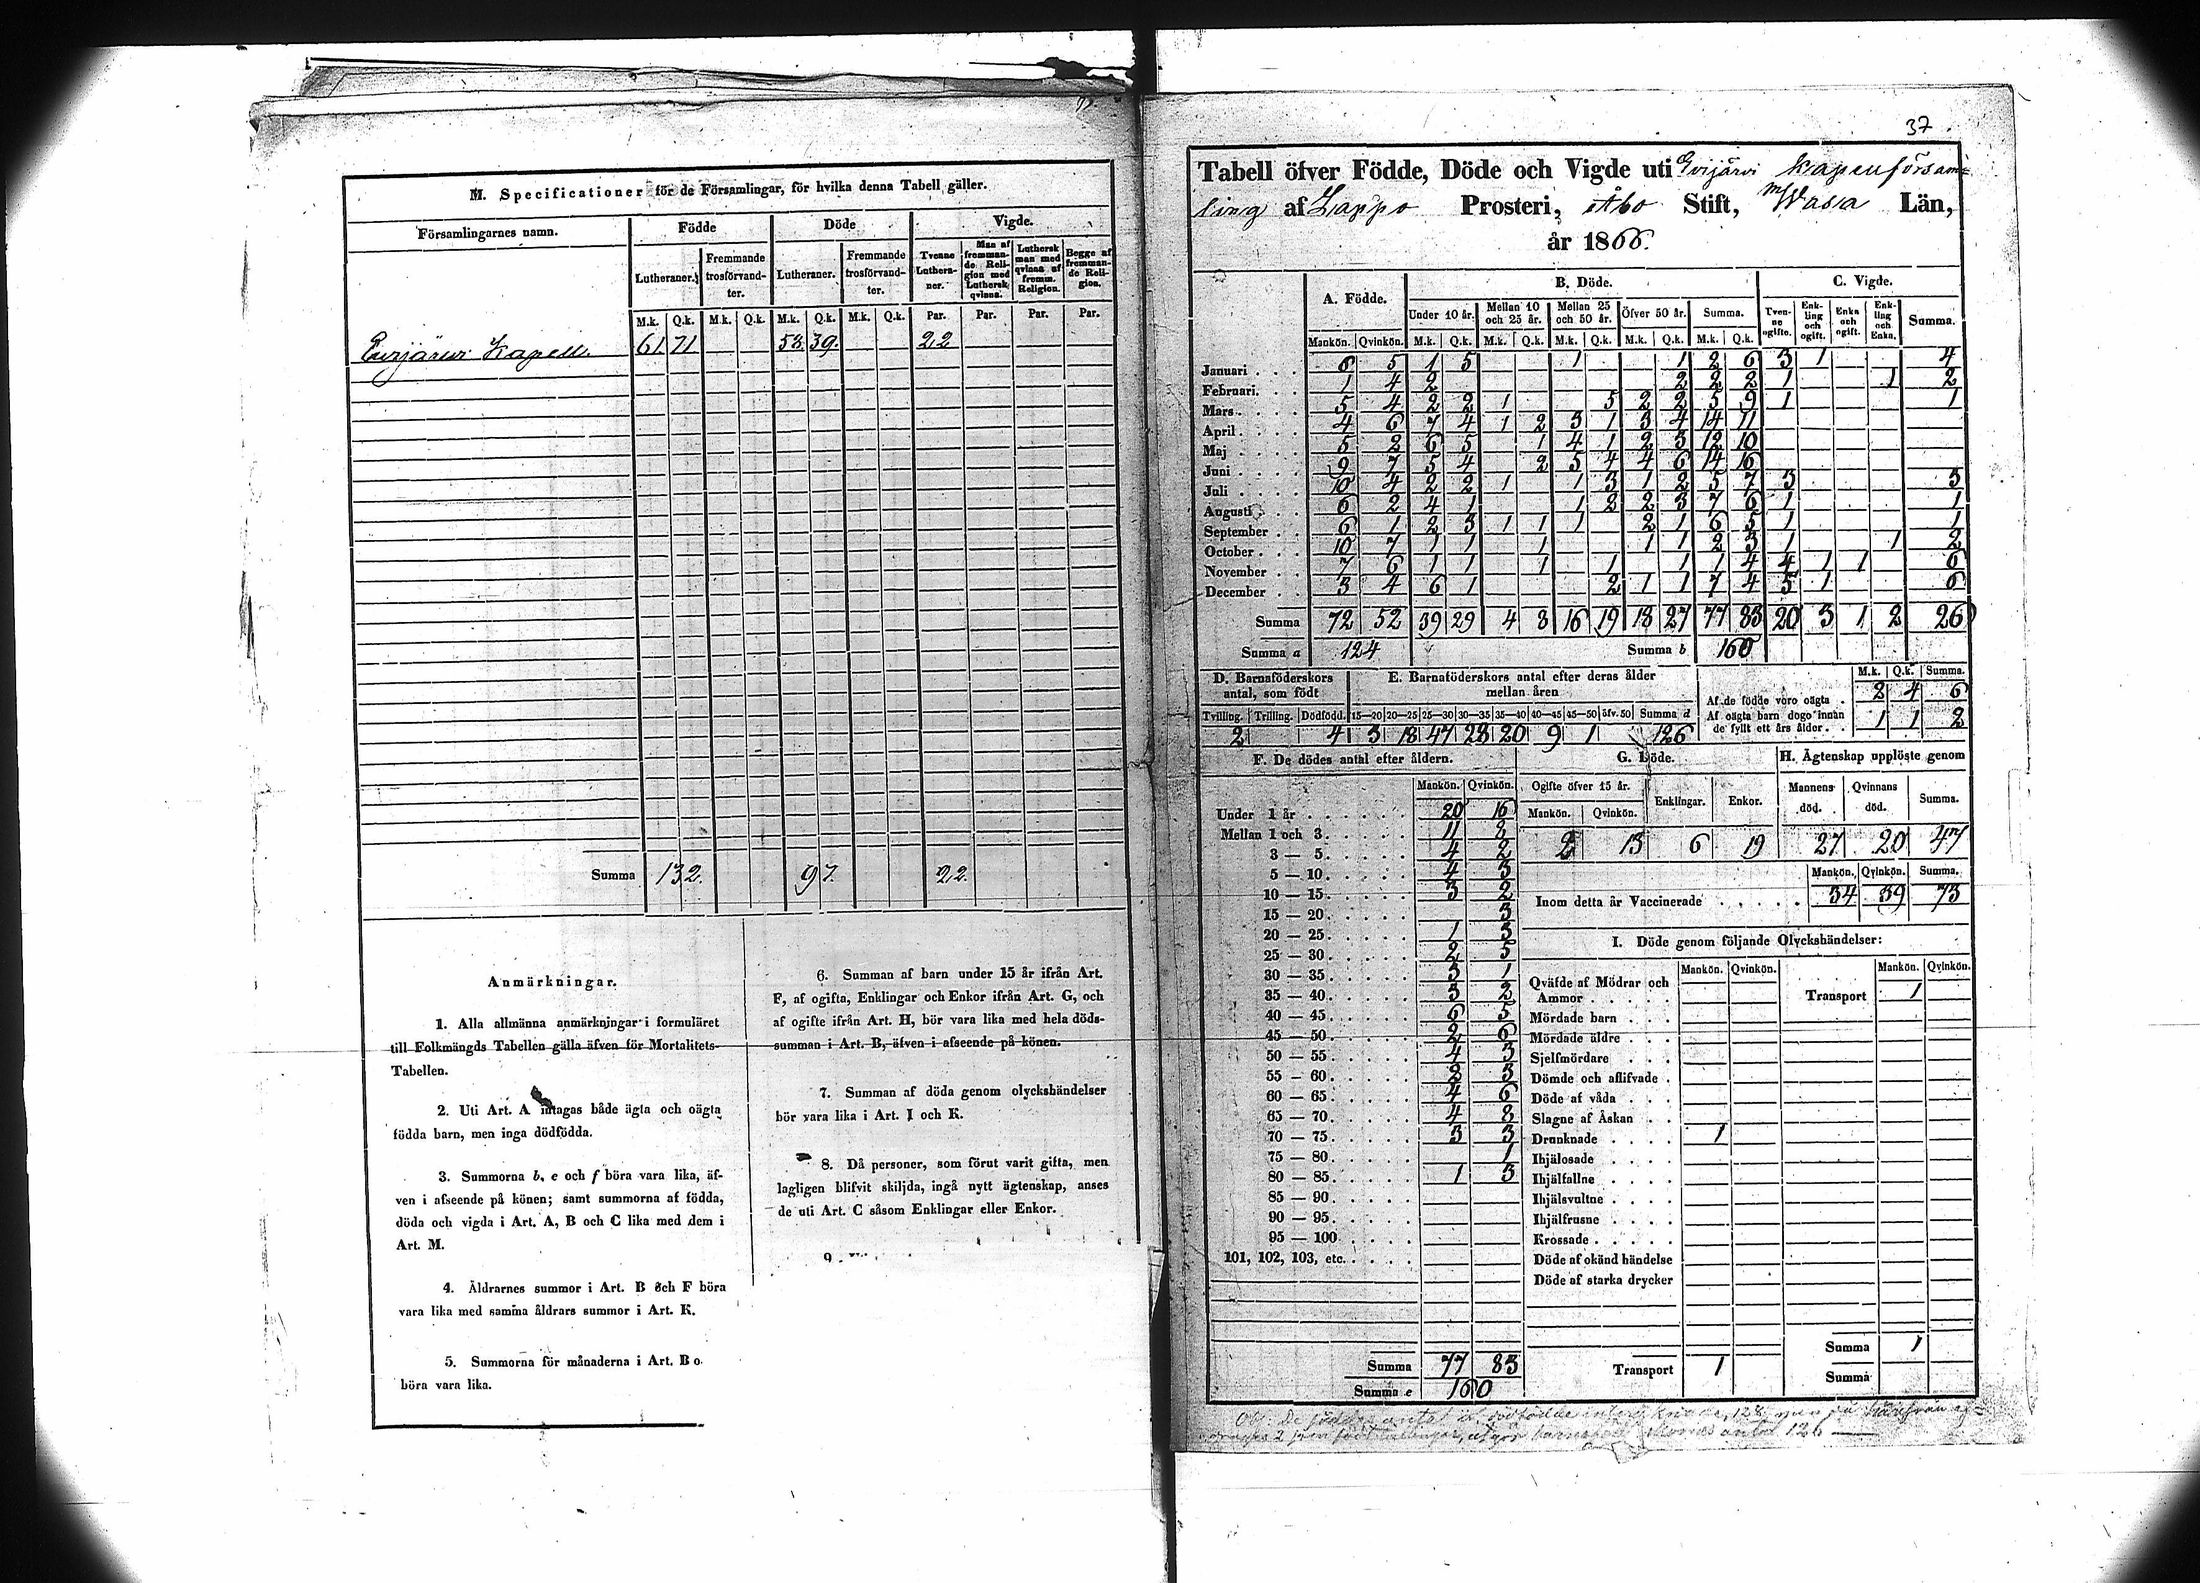 M. Specificationer för de Församlingar, för hvilka denna Tabell gäller.
Församlingarnes namn. Födde Döde Vigde.
Lutheraner. Fremmande trosförvandter. Lutheraner. Fremmande trosförvandter. Tvenne Lutheraner. Man af fremmande Religion med Luthersk qvinna. Luthersk man med qvinna af fremm. Religion. Begge af fremmande Religion.
M.k. Q.k. M.k. Q.k. M.k. Q.k. M.k. Q.k. Par. Par. Par. Par.
Kapell 61 71 58 39 22
Summa 132. 97. 22.
Anmärkningar.
1. Alla allmänna anmärkningar i formuläret
till Folkmängds Tabellen gälla äfven för Mortalitets-
Tabellen.
2. Uti Art. A intagas både ägta och oägta
födda barn, men inga dödfödda.
3. Summorna b, e och f böra vara lika, äf-
ven i afseende på könen; samt summorna af födda,
döda och vigda i Art. A, B och C lika med dem i
Art. M.
4. Åldrarnes summor i Art. B och F böra
vara lika med samma åldrars summor i Art. K.
5. Summorna för månaderna i Art. B o
böra vara lika.
6. Summan af barn under 15 år ifrån Art.
F, af ogifta, Enklingar och Enkor ifrån Art. G, och
af ogifte ifrån Art. H, bör vara lika med hela döds-
summan i Art. B, äfven i afseende på könen.
7. Summan af döda genom olyckshändelser
bör vara lika i Art. I och K.
8. Då personer, som förut varit gifta, men
lagligen blifvit skiljda, ingå nytt ägtenskap, anses
de uti Art. C såsom Enklingar eller Enkor.
9.
37
Tabell öfver Födde, Döde och Vigde uti Evijärvi Kapellförsam=
ling af Lappo Prosteri, Åbo Stift, Wasa Län,
år 1866.
A. Födde. B. Döde. C. Vigde.
Under 10 år. Mellan 10 och 25 år. Mellan 25 och 50 år. Öfver 50 år. Summa. Tvenne ogifte. Enkling och ogift. Enka och ogift. Enkling och Enka. Summa.
Mankön. Qvinkön. M.k. Q.k. M.k. Q.k. M.k. Q.k. M.k. Q.k. M.k. Q.k.
Januari 6 5 1 5 1 1 2 6 3 1 4
Februari. 1 4 2 2 2 2 1 1 2
Mars 5 4 2 2 1 5 2 2 5 9 1 1
April 4 6 7 4 1 2 3 1 3 4 14 11
Maj 5 2 6 5 1 4 1 2 3 12 10
Juni 9 7 5 4 2 5 4 4 6 14 16
Juli 10 4 2 2 1 1 3 1 2 5 7 3 3
Augusti 6 2 4 1 1 2 2 3 7 6 1 1
September 6 1 2 3 1 1 1 2 1 6 5 1 1
October 10 7 1 1 1 1 1 2 3 1 1 2
November 7 6 1 1 1 1 1 1 4 4 1 1 6
December 3 4 6 1 2 1 1 7 4 5 1 6
Summa 72 52 39 29 4 8 16 19 18 27 77 83 20 3 1 2 26
Summa a 124 Summa b 160
D. Barnaföderskors antal, som födt
E. Barnaföderskors antal efter deras ålder mellan åren
M.k. Q.k. Summa.
Af de födde voro oägta 2 4 6
Af oägta barn dogo innan de fyllt ett års ålder 1 1 2
Tvilling. Trilling. Dödfödd. 15—20 20—25 25—30 30—35 35—40 40—45 45—50 öfv. 50 Summa d
2 4 3 18 47 28 20 9 1 126
F. De dödes antal efter åldern.
Mankön. Qvinkön.
Under 1 år 20 16
Mellan 1 och 3 11 8
3 — 5 4 2
5 — 10 4 3
10 — 15 3 2
15 — 20 3
20 — 25 1 3
25 — 30 2 5
30 — 35 3 1
35 — 40 3 2
40 — 45 6 5
45 — 50 2 6
50 — 55 4 3
55 — 60 2 3
60 — 65 4 6
65 — 70 4 8
70 — 75 3 3
75 — 80 1
80 — 85 1 3
85 — 90
90 — 95
95 — 100
101, 102, 103, etc.
Summa 77 83
Summa e 160
G. Döde.
Ogifte öfver 15 år. Enklingar. Enkor.
Mankön. Qvinkön.
2 13 6 19
H. Ägtenskap upplöste genom
Mannens död. Qvinnans död. Summa.
27 20 47
Mankön. Qvinkön. Summa.
Inom detta år Vaccinerade 34 39 73
I. Döde genom följande Olyckshändelser:
Mankön. Qvinkön. Mankön. Qvinkön.
Qväfde af Mödrar och
Ammor
Transport 1
Mördade barn
Mördade äldre
Sjelfmördare
Dömde och aflifvade
Döde af våda
Slagne af Åskan
Drunknade 1
Ihjälosade
Ihjälfallne
Ihjälsvultne
Ihjälfrusne
Krossade
Döde af okänd händelse
Döde af starka drycker
Summa 1
Transport 1
Summa
Obs: De föddes antal dödfödde 128 men härifrån af=
2 som födt antal 126